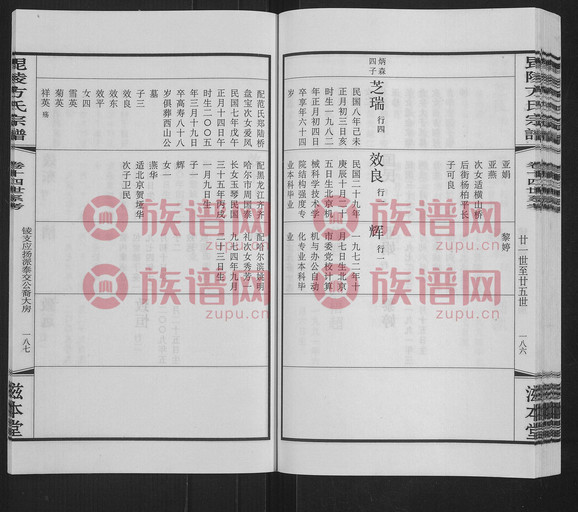 毘陵方氏宗谱
卷十四世系考
廿一世至廿五世
一八六
滋本堂
亚娟
亚燕
次女适横山桥
后街杨柏平长
子可良
黎婷
炳森
四子
芝瑞 行四
民国八年己未
正月初三日亥
时生一九八二
年正月初四日
卒享年六十四
效良 行一
民国二十九年
庚辰十月二十
五日生北京机
械科学技术学
院结构强度专
业本科毕业
辉 行一
一九七二年十
月七日生北京
市委党校计算
机与办公自动
化专业本科毕
业
配范氏郑陆桥
盘宝次女爱凤
民国七年戊午
正月十四日午
时生二〇〇五
年三月十九日
卒高寿八十八
岁俱葬西山公
墓
子三
效良
效东
效平
女四
雪英
菊英
祥英 殇
配黑龙江齐齐
哈尔市周国泰
长女玉琴民国
三十五年丙戌
一月九日生
子一
辉
女一
燕华
适北京贺瑞华
次子卫民
配哈尔滨姚明
礼次女秀芳一
九七四年九月
二十三日生
毘陵方氏宗谱
卷十四世系考
铍支应扬派泰交公裔大房
一八七
滋本堂
族谱网
zupu.cn
族谱网
zupu.cn
族谱网
zupu.cn
族谱网
zupu.cn